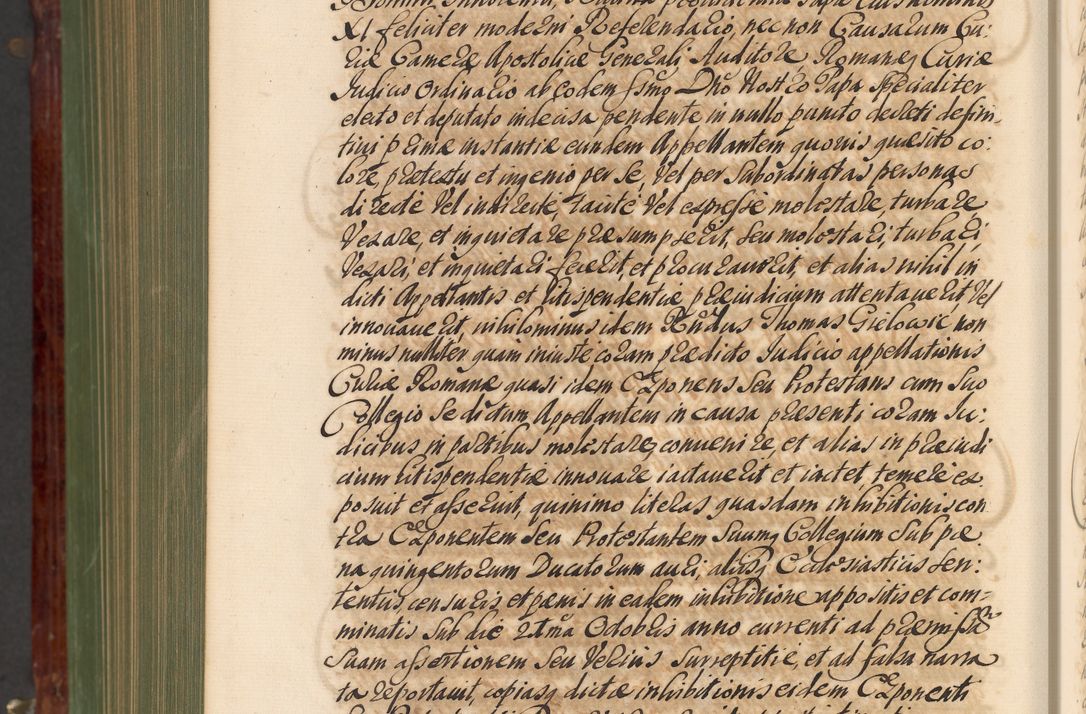 XI feliciter moderni Referendario, nec non Causarum Cu:
riæ Cameræ Apostolicæ Generali Auditore Romanæq Curiæ
Judicio Ordinario ab Eodem Ssmo Dno Nostro Papa specialiter
electo et deputato indecisa pendente in nullo puncto decreti defini
tivi primæ instantiæ eundem Appellantem quovis quæsito co:
lore, prætextu et ingenio per se, vel per subordinatas personas
directe vel indirecte, tacite vel expresse molostare, turbare
vexare, et inquietare præsumpserit, seu molostari, turbari
vexari, et inquietari fecerit, et procuraverit, et alias nihil in
dicti Appellantis et litispendentiæ præiudicium attentaverit vel
innovaverit, nihilominus idem Rndus Thomas Gielowic non
minus nulliter quam iniuste, coram prædicto Judicio appellationis
Curiæ Romanæ quasi idem Exponens seu Protestans cum suo
Collegio se dictum Appellantem in causa præsenti coram Ju:
dicibus in partibus molostare, convenire, et alias in præiudi
cium litispendentiæ innovare iactaverit et iactet, temere ex
posuit et asseruit, quinimo literas quasdam inhibitionis con
tra Exponentem seu Protestantem suumq Collegium sub pæ
na quingentorum Ducatorum auri, aliisq Ecclesiasticis sen:
tentiis, censuris, et pænis in eadem inhibitione appositis et com=
minatis sub die 22tma Octobris anno currenti ad præmissam
suam assertionem seu verius surreptitie, et ad falsa narra
ta reportavit, copiasq dictæ inhibitionis eidem Exponenti